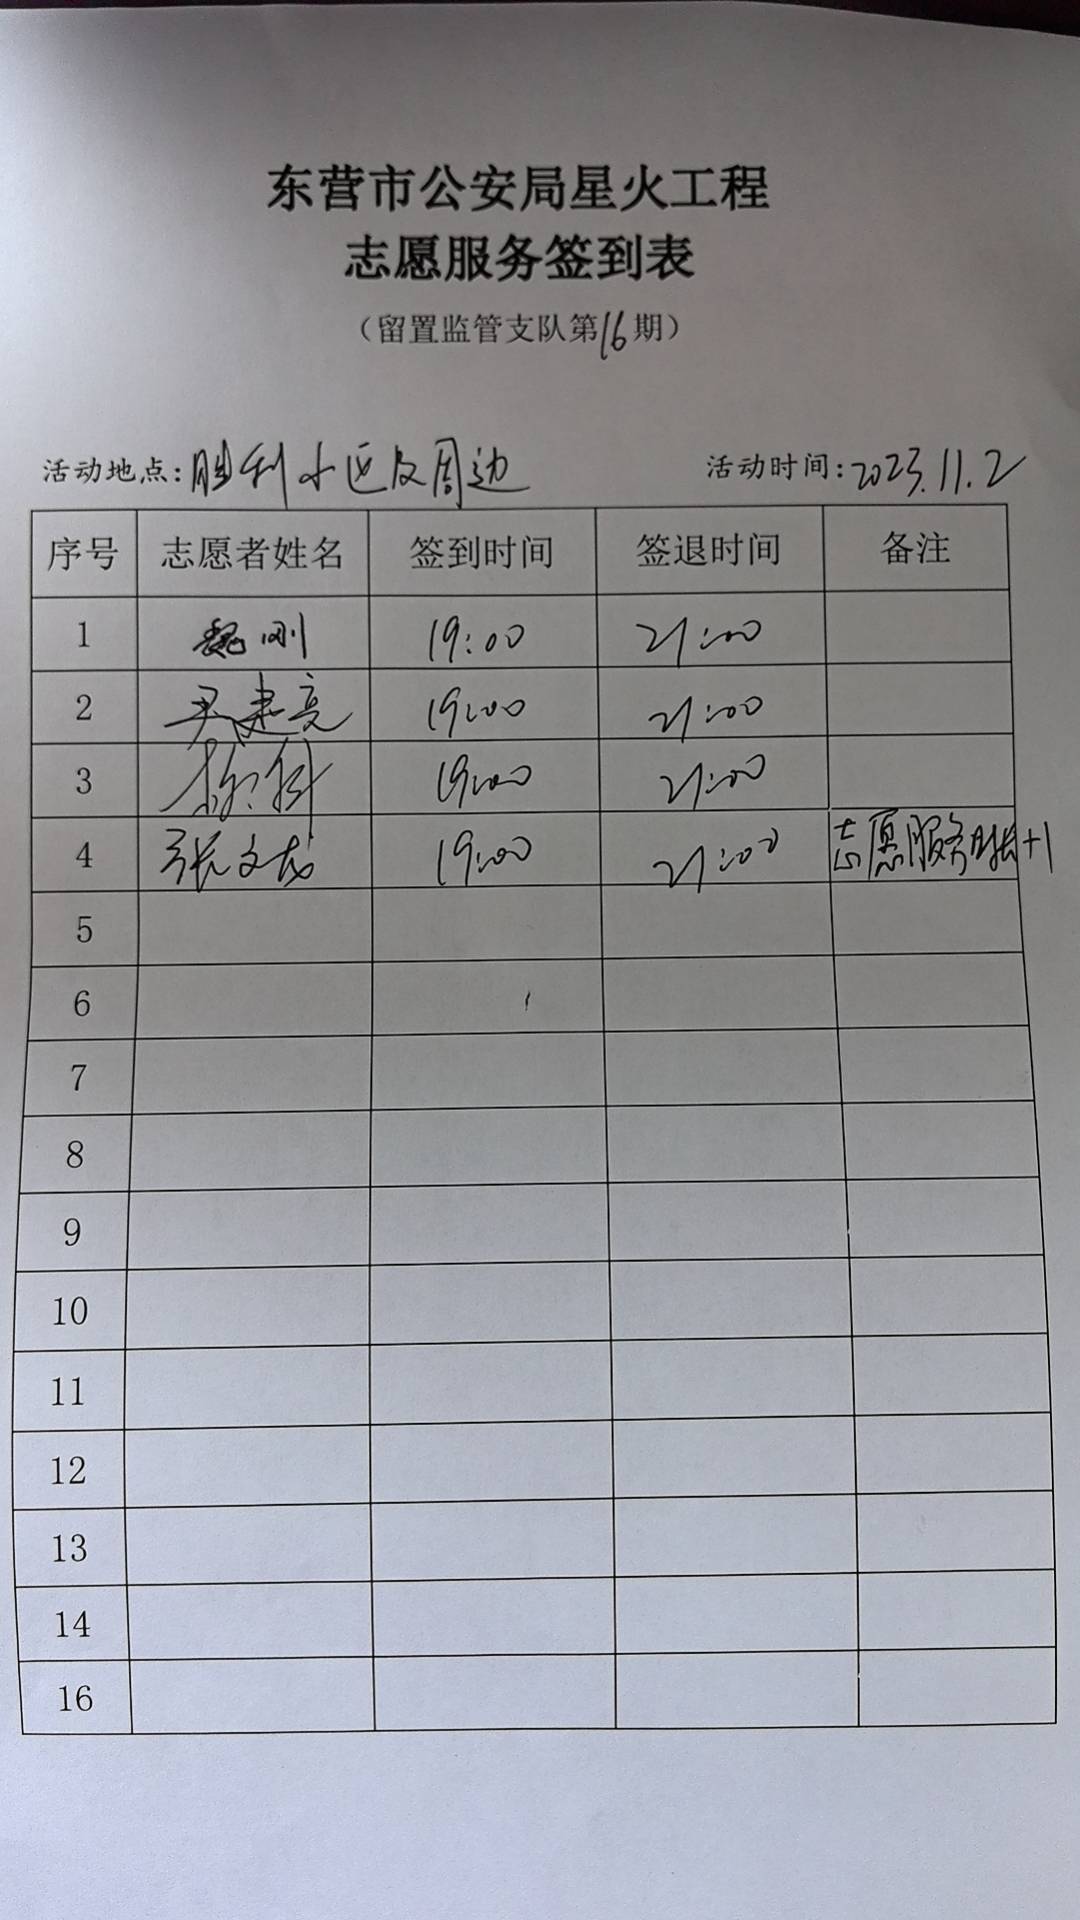 东营市公安局星火工程
志愿服务签到表
（留置监管支队第16期）
活动地点：胜利小区及周边 活动时间：2023.11.2
序号 志愿者姓名 签到时间 签退时间 备注
1 魏刚 19:00 21:00
2 尹建亮 19:00 21:00
3 19:00 21:00
4 张文龙 19:00 21:00 志愿服务时长+1
5
6
7
8
9
10
11
12
13
14
16